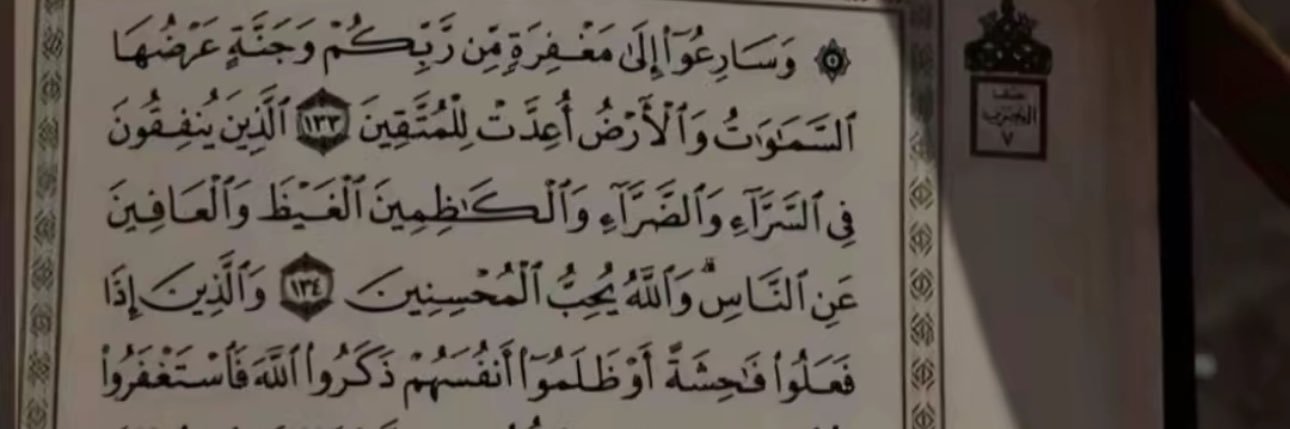 ۞ وَسَارِعُوٓا۟ إِلَىٰ مَغْفِرَةٍ مِّن رَّبِّكُمْ وَجَنَّةٍ عَرْضُهَا
ٱلسَّمَٰوَٰتُ وَٱلْأَرْضُ أُعِدَّتْ لِلْمُتَّقِينَ ١٣٣ ٱلَّذِينَ يُنفِقُونَ
فِى ٱلسَّرَّآءِ وَٱلضَّرَّآءِ وَٱلْكَٰظِمِينَ ٱلْغَيْظَ وَٱلْعَافِينَ
عَنِ ٱلنَّاسِ ۗ وَٱللَّهُ يُحِبُّ ٱلْمُحْسِنِينَ ١٣٤ وَٱلَّذِينَ إِذَا
فَعَلُوا۟ فَٰحِشَةً أَوْ ظَلَمُوٓا۟ أَنفُسَهُمْ ذَكَرُوا۟ ٱللَّهَ فَٱسْتَغْفَرُوا۟
الحزب
٧